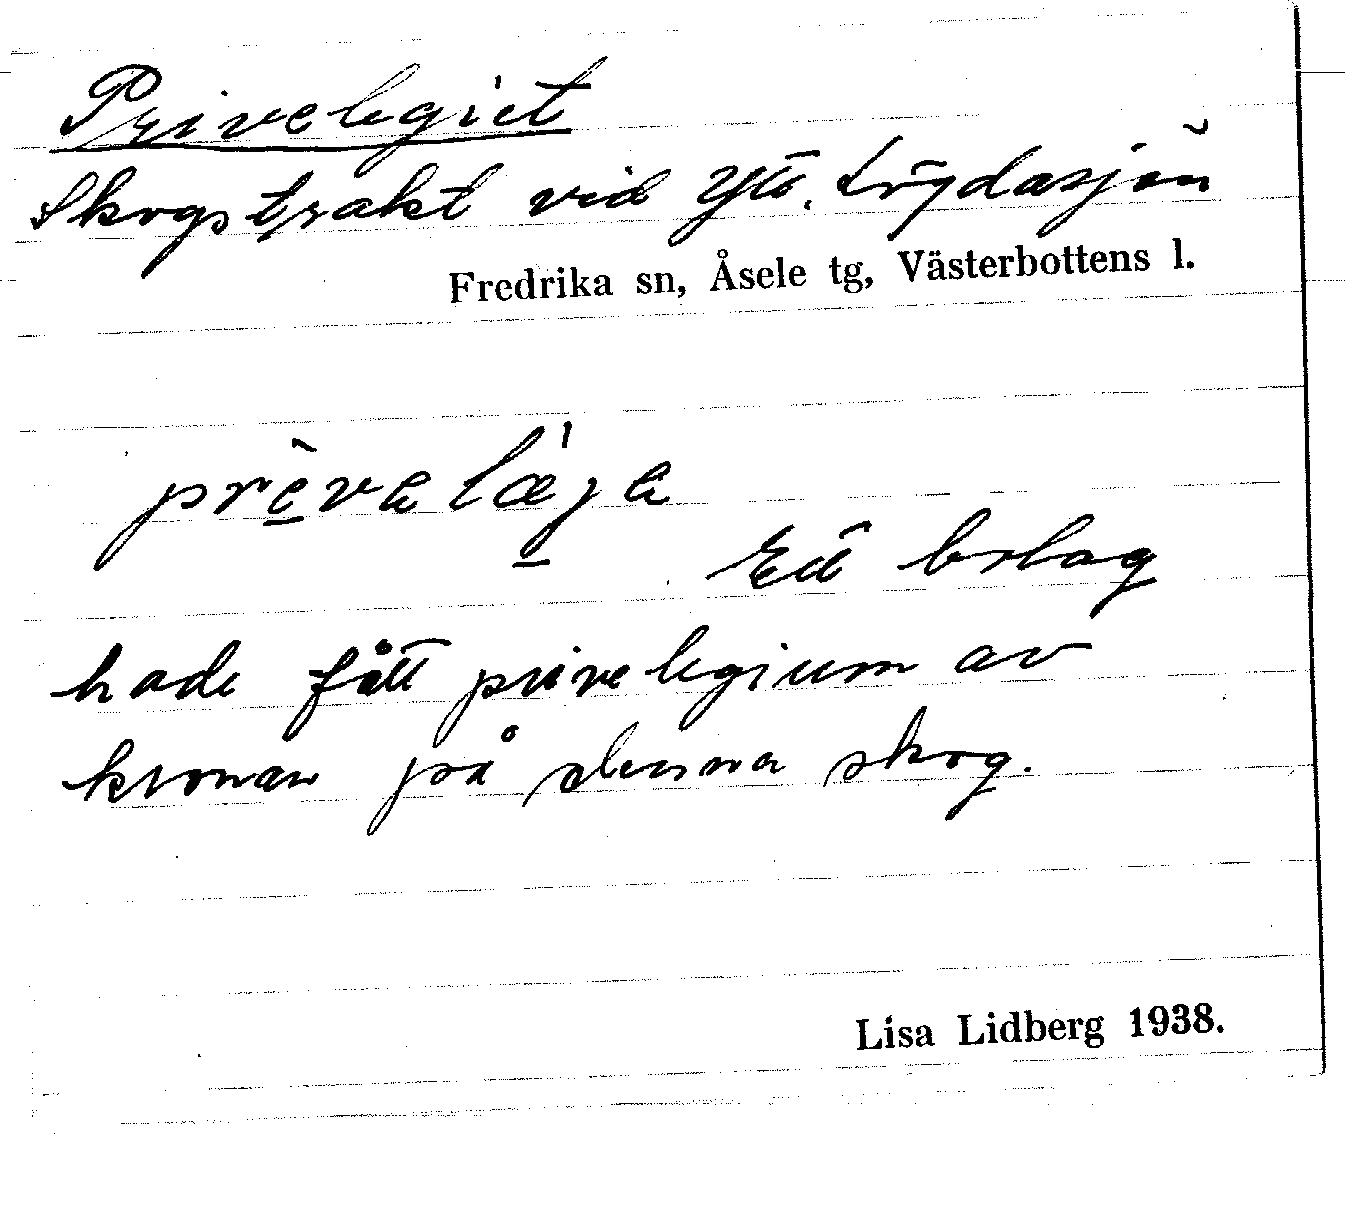 Privelegiet
Skogstrakt vid Ytt. Lögdasjön
Fredrika sn, Åsele tg, Västerbottens l.
prèvelǽje
Ett bolag
hade fått privelegium av
kronan på denna skog.
Lisa Lidberg 1938.